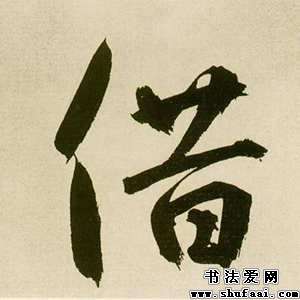 借
书法爱网
www.shufaai.com